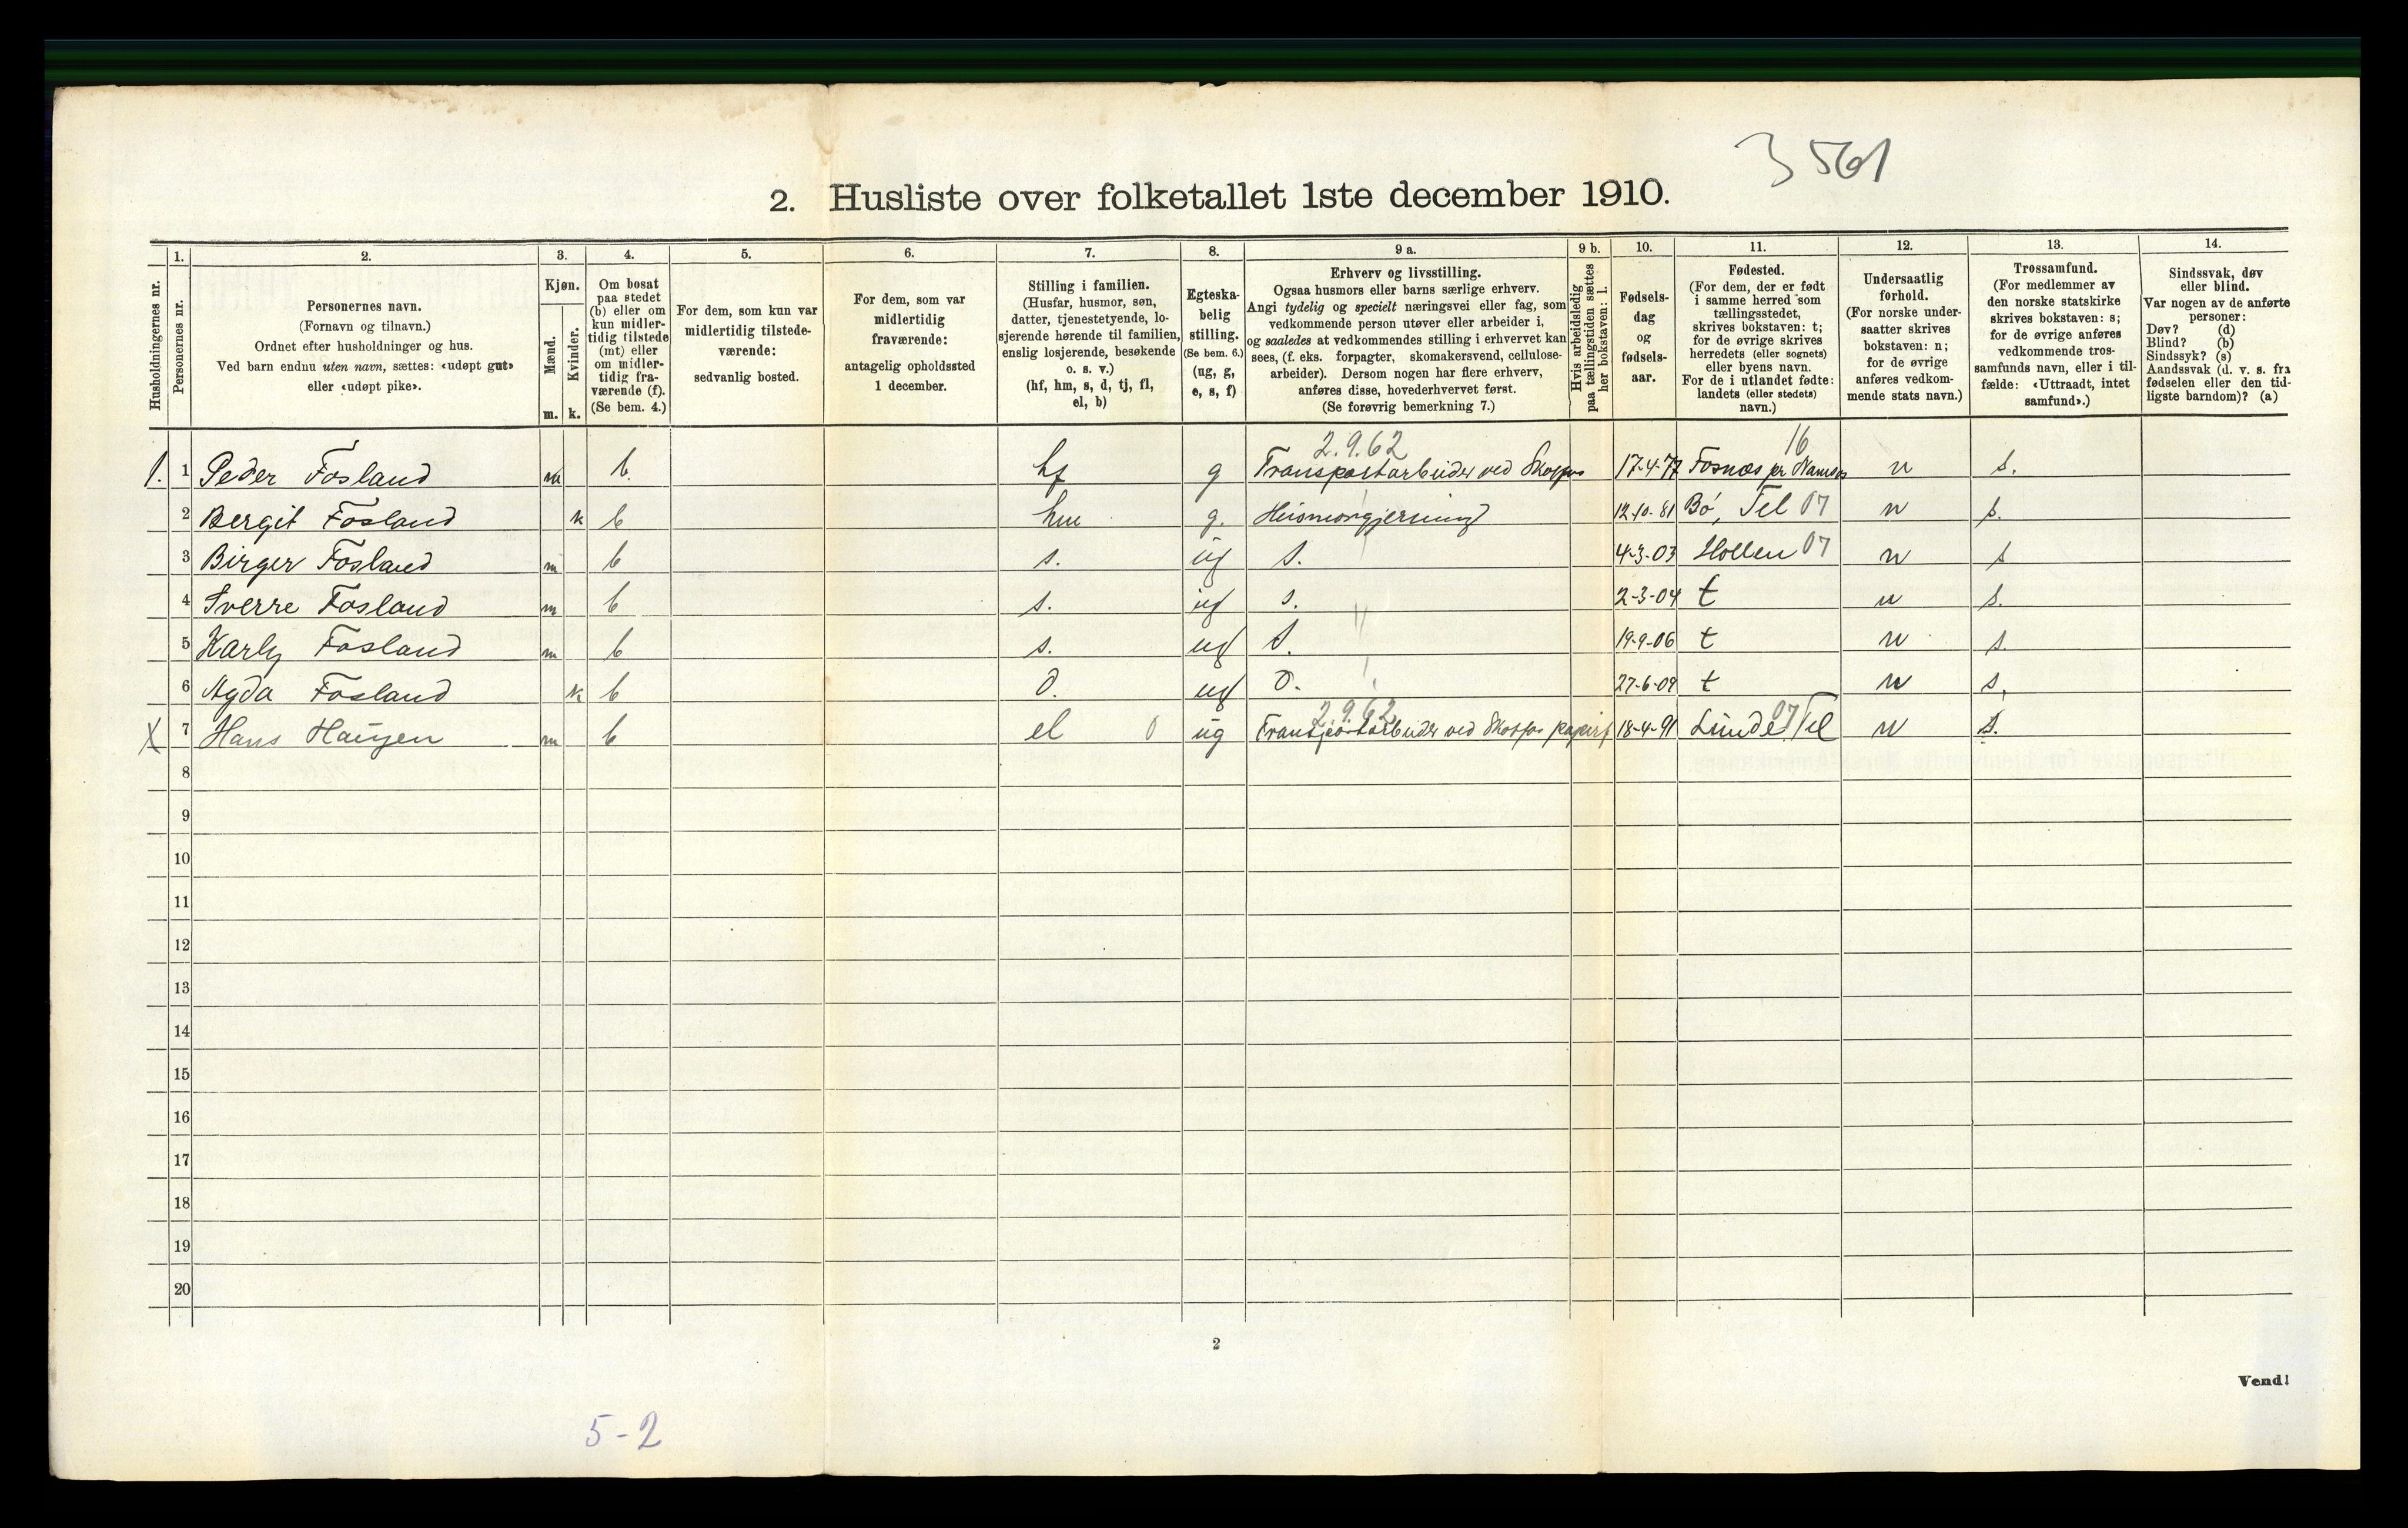 3561
2. Husliste over folketallet 1ste december 1910.
Husholdningernes nr.
1. Personernes nr.
2. Personernes navn.
(Fornavn og tilnavn.)
Ordnet efter husholdninger og hus.
Ved barn endnu uten navn, sættes: «udøpt gut»
eller «udøpt pike».
3. Kjøn.
Mænd. Kvinder.
m. k.
4. Om bosat
paa stedet
(b) eller om
kun midler-
tidig tilstede
(mt) eller
om midler-
tidig fra-
værende (f).
(Se bem. 4.)
5. For dem, som kun var
midlertidig tilstede-
værende:
sedvanlig bosted.
6. For dem, som var
midlertidig
fraværende:
antagelig opholdssted
1 december.
7. Stilling i familien.
(Husfar, husmor, søn,
datter, tjenestetyende, lo-
sjerende hørende til familien,
enslig losjerende, besøkende
o. s. v.)
(hf, hm, s, d, tj, fl,
el, b)
8. Egteska-
belig
stilling.
(Se bem. 6.)
(ug, g,
e, s, f)
9 a. Erhverv og livsstilling.
Ogsaa husmors eller barns særlige erhverv.
Angi tydelig og specielt næringsvei eller fag, som
vedkommende person utøver eller arbeider i,
og saaledes at vedkommendes stilling i erhvervet kan
sees, (f. eks. forpagter, skomakersvend, cellulose-
arbeider). Dersom nogen har flere erhverv,
anføres disse, hovederhvervet først.
(Se forøvrig bemerkning 7.)
9 b. Hvis arbeidsledig
paa tællingstiden sættes
her bokstaven: l.
10. Fødsels-
dag
og
fødsels-
aar.
11. Fødested.
(For dem, der er født
i samme herred som
tællingsstedet,
skrives bokstaven: t;
for de øvrige skrives
herredets (eller sognets)
eller byens navn.
For de i utlandet fødte:
landets (eller stedets)
navn.)
12. Undersaatlig
forhold.
(For norske under-
saatter skrives
bokstaven: n;
for de øvrige
anføres vedkom-
mende stats navn.)
13. Trossamfund.
(For medlemmer av
den norske statskirke
skrives bokstaven: s;
for de øvrige anføres
vedkommende tros-
samfunds navn, eller i til-
fælde: «Uttraadt, intet
samfund».)
14. Sindssvak, døv
eller blind.
Var nogen av de anførte
personer:
Døv? (d)
Blind? (b)
Sindssyk? (s)
Aandssvak (d. v. s. fra
fødselen eller den tid-
ligste barndom)? (a)
2.9.62 16
1. 1 Peder Fosland m b. hf g Transportarbeider ved Skotfos 17-4-77 Fosnæs pr. Namsos n s.
2 Bergit Fosland k b hm g. Husmorgjerning 12-10-81 Bø, Tel 07 n s.
3 Birger Fosland m b s. ug s. 4-3-03 Hollen 07 n s
4 Sverre Fosland m b s. ug s. 2-3-04 t n s.
5 Karly Fosland m b s. ug s. 19-9-06 t n s.
6 Agda Fosland k b d. ug d. 27-6-09 t n s.
2.9.62 07
X 7 Hans Haugen m b el 0 ug Transportarbeider ved Skotfos papirf 18-4-91 Lunde Tel n s.
8
9
10
11
12
13
14
15
16
17
18
19
20
2
Vend!
5-2